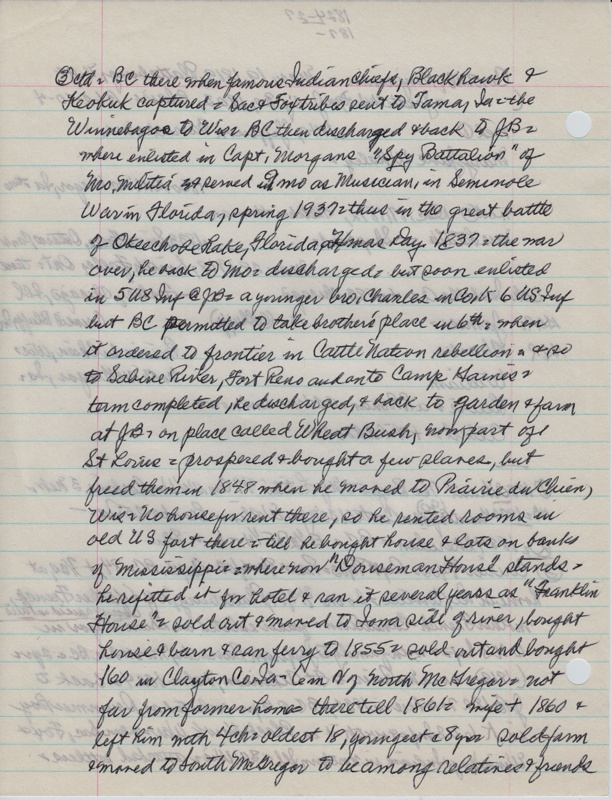 1824-27
187-
③ctd = BC there when famous Indian Chiefs, Black Hawk &
Keokuk captured = Sac & Fox tribes sent to Tama, Ia = the
Winnebagos to Wis = BC then discharged & back to JB =
where enlisted in Capt. Morgans "Spy Battalion" of
Mo. Militia & served 9 mo as Musician, in Seminole
War in Florida, spring 1937 = thus in the great battle
of Okeechobe Lake, Florida, Xmas Day 1837 = the war
over, he back to Mo = discharged = but soon enlisted
in 5 US Inf @ JB = a younger bro, Charles in Co K 6 US Inf
but BC permitted to take brother's place in 6th = when
it ordered to frontier in Cattle Nation rebellion = & so
to Sabine River, Fort Reno and onto Camp Haines =
term completed, he discharged, & back to garden & farm
at JB, on place called Wheat Bush, now part of
St Louis = prospered & bought a few slaves, but
freed them in 1848 when he moved to Prairie du Chien,
Wis = No house for rent there, so he rented rooms in
old US fort there = till he bought house & lots on banks
of Mississippi = where now "Douseman House" stands =
he refitted it for hotel & ran it several years as "Franklin
House" = sold out & moved to Iowa side of river, bought
house & barn & ran ferry to 1855 = sold out and bought
160 in Clayton Co Ia - 6 m N of North McGregor = not
far from former home = there till 1861 = wife + 1860 &
left him with 4 ch = oldest 18, youngest 8 yrs sold farm
& moved to South McGregor to be among relatives & friends